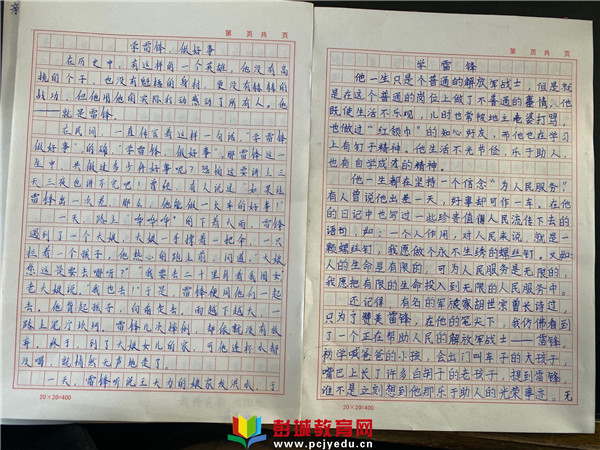 第 页 共 页
学雷锋，做好事
在历史中，有这样的一个英雄，他没有高
挑的个子，也没有魁梧的身材，更没有赫赫的
战功，但他用他的实际行动感动了所有人。他
——就是雷锋。
在民间，一直传言着这样一句话，“学雷锋
做好事”。的确，“学雷锋，做好事”，那雷锋这一
生中，共做过多少件好事呢？恐怕这要讲上三
天三夜也讲不完吧！曾经，有人说过“如果让
雷锋出一次差，那么，他能做一火车的好事！”
一天，路上“哗哗哗”的下着大雨，雷锋
遇到了一个大娘，大娘一手撑着一把伞，一只
拉着一个孩子，他热心的跑上前，问道，“大娘
您这是要去哪呀？”“我要去二十里外看我闺女”
老大娘说。“我也去！”于是，雷锋便同他们一起
去，他背起孩子，向前走去。雨越下越大，一
路上泥泞坎坷。雷锋几次摔倒，却依然没有放
弃，终于，到了大娘女儿的家，可他连杯水都
没喝，就悄然无声地走了。
一天，雷锋听说王大力的娘家发洪水，于
20×20=400
第 页 共 页
学 雷 锋
他一生只是个普通的解放军战士，但是就
是在这个普通的岗位上做了不普通的事情。他
既使生活不乐观，儿时也常被地主毒婆打骂，
也做过“红领巾”的知心好友，而他也在学习
上有钉子精神，他生活不光节俭，乐于助人，
也有自学成才的精神。
他一生都在坚持一个信念“为人民服务”
有人曾说他出差一天，好事却可作一车。在他
的日记中也写过一些珍贵值得人民流传下去的
语句，如：一个人作用，对人民来说，就是一
颗螺丝钉，我愿做个永不生锈的螺丝钉。又如
人的生命是有限的，可为人民服务是无限的，
我愿把有限的生命投入到无限的人民服务中。
还记得，有名的军旅家胡世宗曾长诗过，
只为了赞美雷锋，在他的笔尖下，我仿佛看到
了一个正在帮助人民的解放军战士——雷锋。
初学喊爸爸的小孩，会出门叫车子的大孩子，
嘴巴上长了许多白胡子的老孩子，提到雷锋，
谁不是立刻想到他那乐于助人的光荣事迹。无
20×20=400
彭城教育网
www.pcjyedu.cn